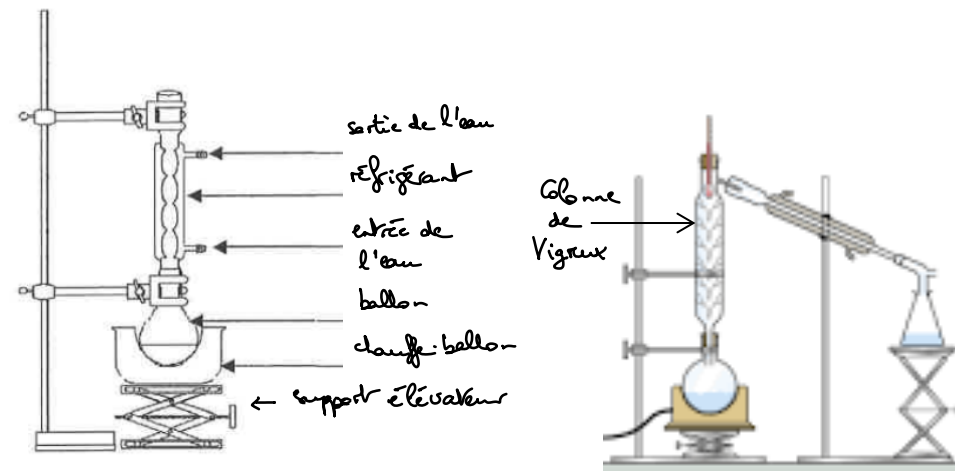 sortie de l'eau
réfrigérant
entrée de
l'eau
ballon
chauffe-ballon
← support élévateur
Colonne
de
Vigreux